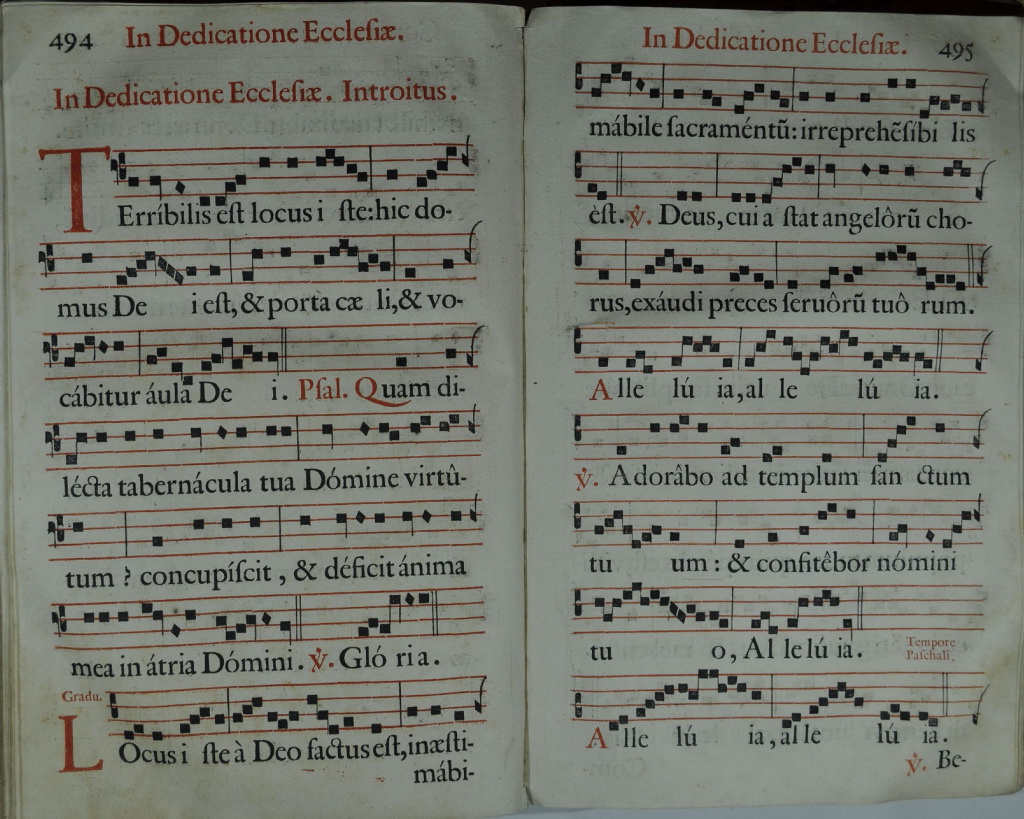 494 In Dedicatione Eccleſiæ.
In Dedicatione Eccleſiæ. Introitus.
TErríbilis eſt locus i ſte: hic do-
mus De i eſt, & porta cæ li, & vo-
cábitur áula De i. Pſal. Quam di-
lécta tabernácula tua Dómine virtû-
tum ? concupíſcit , & déficit ánima
mea in átria Dómini. ℣. Gló ri a.
Gradu.
LOcus i ſte à Deo factus eſt, inæſti-
mábi-
In Dedicatione Eccleſiæ. 495
mábile ſacraméntũ: irreprehẽſíbi lis
eſt. ℣. Deus, cui a ſtat angelôrũ cho-
rus, exáudi preces ſeruôrũ tuô rum.
A lle lú ia, al le lú ia.
℣. Adorâbo ad templum ſan ctum
tu um : & confitêbor nómini
tu o, Al le lú ia. Tempore
Paſchali.
A lle lú ia, al le lú ia.
℣. Be-